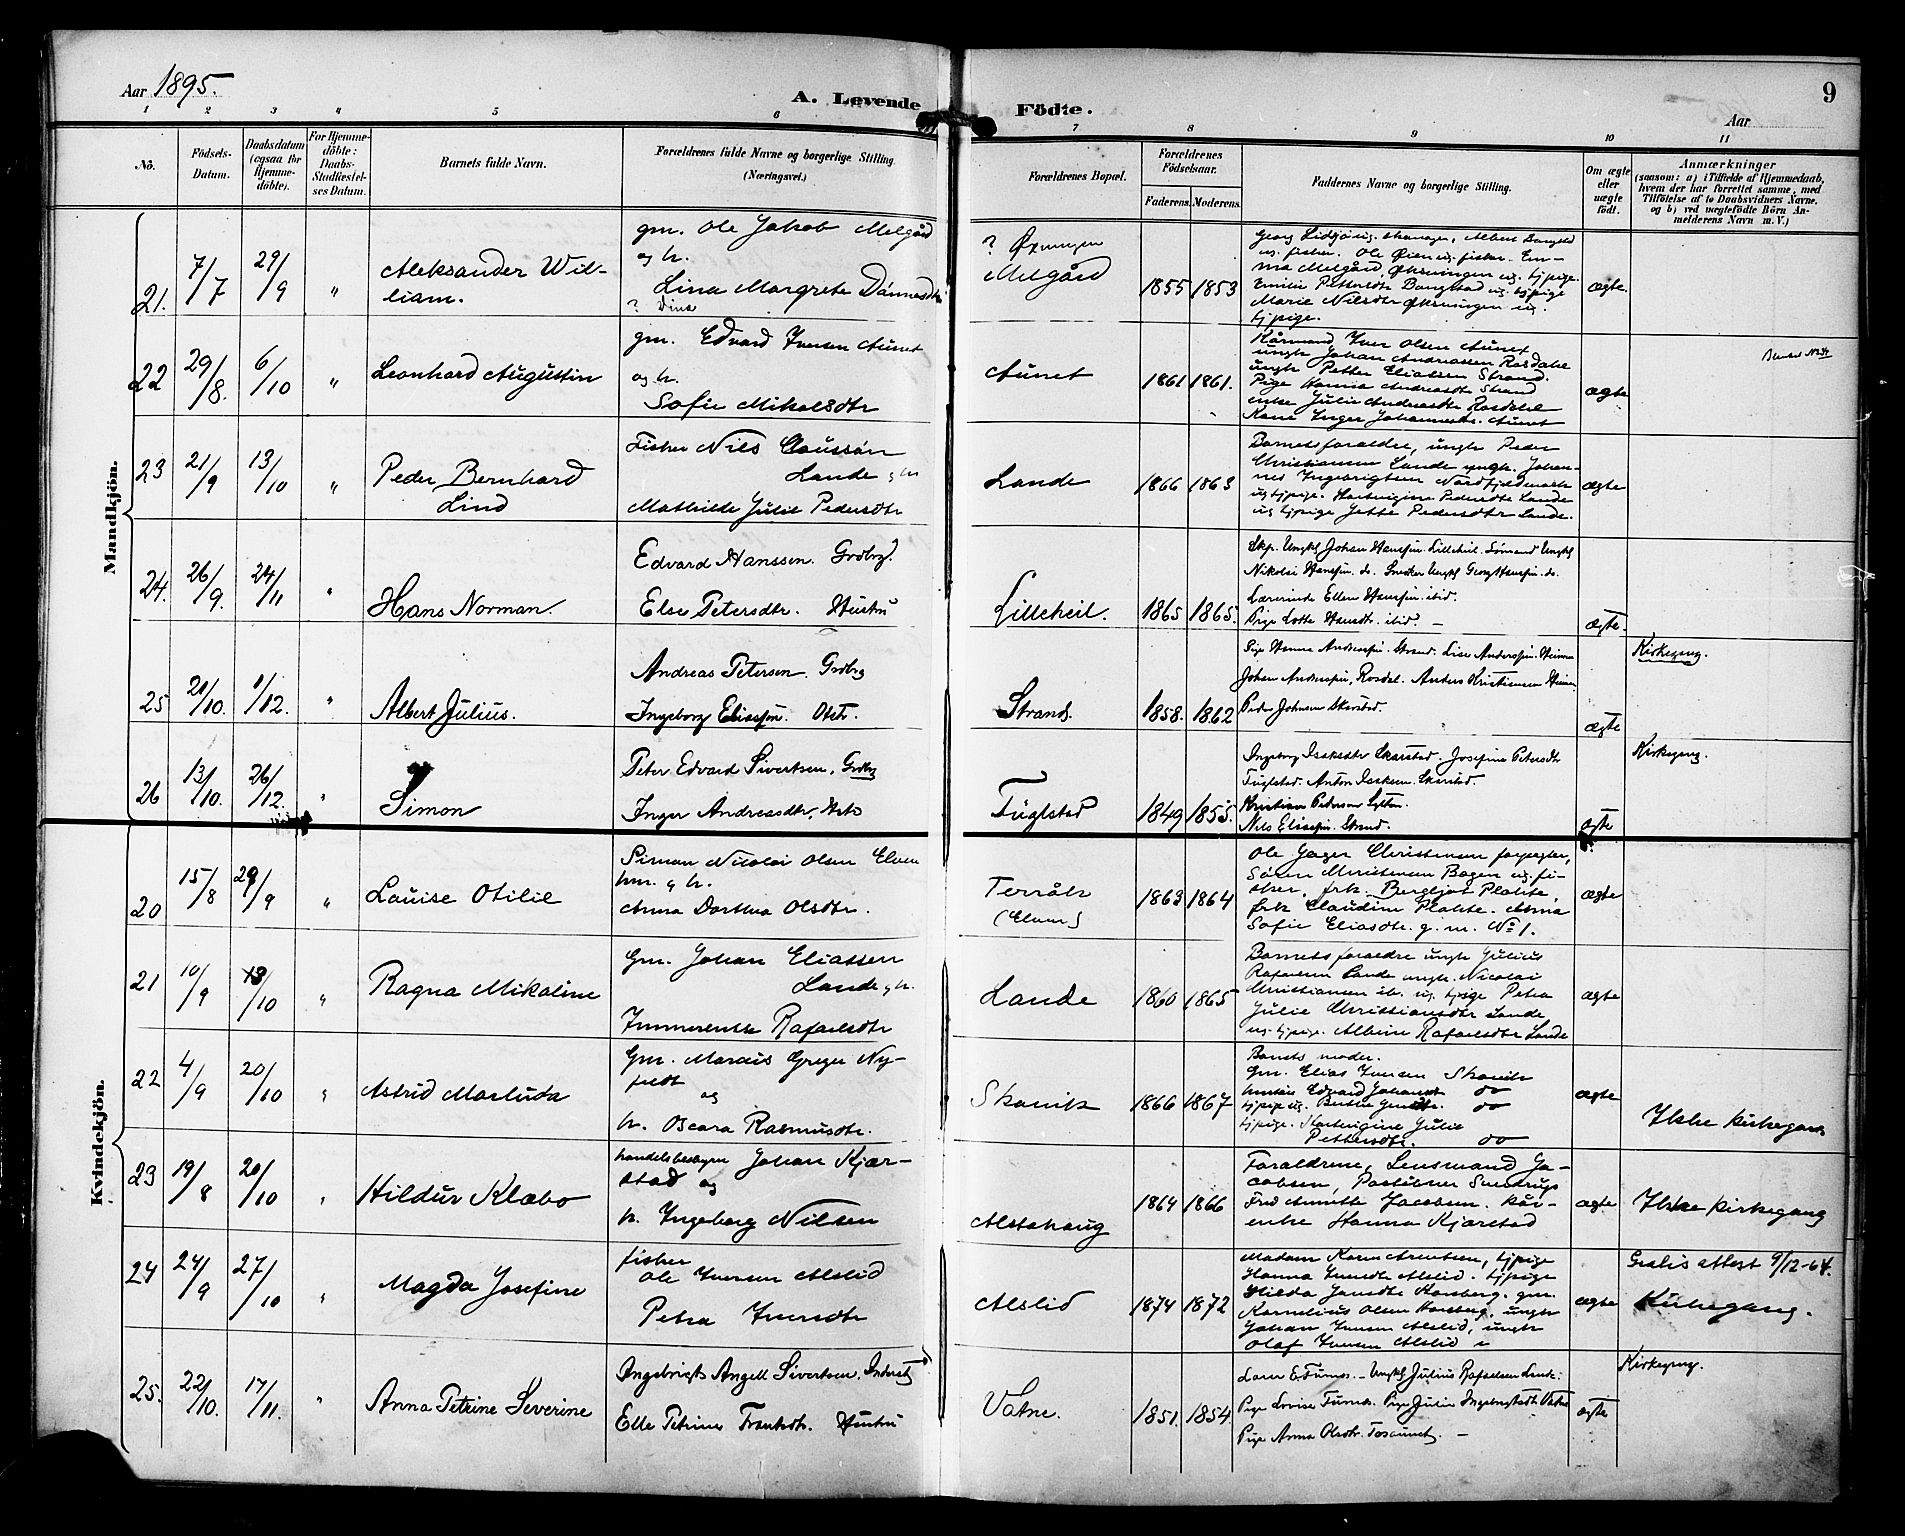 Aar 1895.
A. Levende Födte.
9
Aar
1 2 3 4 5 6 7 8 9 10 11
No.
Födsels-Datum.
Daabsdatum (ogsaa for Hjemme-döbte).
For Hjemme-döbte: Daabs-Stadfæstel-ses Datum.
Barnets fulde Navn.
Forældrenes fulde Navne og borgerlige Stilling. (Næringsvei.)
Forældrenes Bopæl.
Forældrenes Födselsaar.
Faderens. Moderens.
Faddernes Navne og borgerlige Stilling.
Om ægte eller uægte født.
Anmærkninger
(saasom: a) i Tilfælde af Hjemmedaab,
hvem der har forrettet samme, med
Tilføielse af to Daabsvidners Navne,
og b) ved uægtefødte Börn An-
melderens Navn m. V.)
Mandkjön.
21. 7/7 29/9 " Aleksander Wil-
liam.
gm. Ole Jakob Melgård
og h.
Lina Margrete Dönnesdtr
? Dina
? Øxningen
Melgård
1855 1853
ma Melgård, Øksningen ug. tjpige.
Emilie Pettersdtr Bangstad ug. tjpige
Marie Nilsdtr Øksningen ug.
tjpige.
ægte.
22 29/8. 6/10 " Leonhard Augustin
gm. Edvard Iversen Aunet
og h.
Sofie Mikalsdtr
Aunet
1861 1861.
Kårmand Iver Olsen Aunet
ungk Johan Andreassen Rosdahl
ungk Petter Eliassen Strand.
Pige Hanna Andreasdtr Strand
enke Julie Andreasdtr Rosdahl
Kone Inger Johannesdtr. Aunet
ægte
23 21/9 13/10 " Peder Bernhard
Lind
Fisker Nils Claussøn
Lande og h
Mathilde Julie Pedersdtr
Lande
1866 1863
Barnets foraldre, ungk Peder
Christiansen Lande ungk. Johan-
nes Ingebrigtsen Nordfjeldmark
ug tjpige. Hartvigine Pedersdtr Lande
ug tjpige Jette Pedersdtr Lande.
ægte
24. 26/9. 24/11 " Hans Norman.
Edvard Hanssen. Grdbrg.
Else Petersdtr. Hustru
Lilleheil.
1865 1865.
Skp. Ungkl Johan Hansen. Lilleheil. Sømand Ungkl
Nikolai Hansen. do. Snedker Ungkl Georg Hansen. do.
Lærerinde Ellen Hansen. ibid.
Pige Lotte Hansdtr. ibid. —
ægte.
25 21/10. 1/12. " Albert Julius.
Andreas Petersen. Grdbrg
Ingeborg Eliassen. Hstr.
Strand.
1858. 1862
Pige Hanna Andreassen. Strand. Lise Anderssen. Heimen
Johan Anderssen, Rosdal. Anders Kristiansen Heimen
Peder Johnsen Skarstad.
ægte
Kirkegang.
26 13/10. 26/12. " Simon
Peter Edvard Sivertsen, Grdbrg
Inger Andreasdtr, Hstr
Fuglstad
1849 1855.
Ingeborg Isaksdtr Skarstad. Josefine Petersdtr
Fuglstad. Anton Isaksen. Skarstad.
Nils Eliassen. Strand.
ægte
Kirkegang.
Kvindekjön.
20 15/8 29/9 " Louise Otilie
Simon Nicolai Olsen Elvem
hm. og h.
Anna Dorthea Olsdtr.
Terråk
(Elvem)
1863 1864
Ole Jager Christensen forpagter,
Søren Christensen Bogen ug. fi-
sker, frk. Bergljot Plahte,
frk Claudine Plahte. Anna
Sofie Eliasdtr. g. m. No 1.
ægte
21 10/9 13/10 " Ragna Mikaline
Gm. Johan Eliassen
Lande og h.
Immerentse Rafaelsdtr
Lande
1860 1865
Barnets foraldre ungk Julius
Rafaelsen Lande ungk. Nicolai
Christiansen ib. ug. tjpige Petra
Julie Christiansdtr Lande
ug. tjpige. Albine Rafaelsdtr Lande
ægte
22 4/9 20/10 " Astrid Marluda
Gm. Marcus Greger Ny-
feldt
og
h. Oscara Rasmusdtr.
Skarvik
1866 1867
Barnets moder.
Gm. Elias Iversen Skarvik
tjpige. Hartvigine Julie
Pettersdtr. do
ægte
Ikke kirkegang
23 19/8 20/10 " Hildur Klæbo
handelsbestyrer Johan Kjær-
stad og
h. Ingeborg Nilsen
Alstahaug
1864 1866
Foraldrene, Lensmand Ja-
cobsen, Postaabner Sundrups
Frd Annette Jacobsen. kår-
enke Hanna Kjærstad
ægte
Ikke kirkegang
24 24/9 27/10 " Magda Josefine
fisker
Ole Iversen Alslid
Petra Iversdtr
Alslid
1874 1872
Madam Karen Arentsen, tjpige
Hanna Iversdtr Alslid. tjpige
Hilda Jansdtr Horsberg. gm.
Kornelius Olsen Horsberg, ungk
Johan Iversen Alslid, ungk
Olaf Iversen Alslid
ægte
Gratis attest 9/12-64.
Kirkegang.
25. 22/10. 17/11. " Anna Petrine Severine
Ingebrigt Angell Sivertsen, Inderst
Elle Petrine Frantsdtr. Hustru
Vatne.
1851. 1854
Pige Lovise Furnes. Pige Julie Ingebrigtsdtr Vatne
Pige Anna Olsdtr. Tosaunet. —
ægte
Kirkegang.